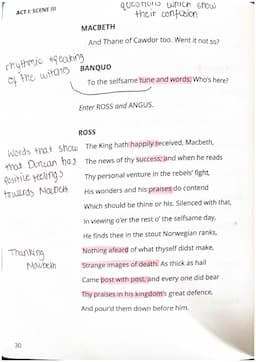 questions which show
their confusion
ACT I: SCENE III
MACBETH
And Thane of Cawdor too. Went it not so?
rhythmic speaking
of the witches
BANQUO
To the selfsame tune and words. Who's here?
Enter ROSS and ANGUS.
ROSS
Words that show
that Duncan has
positive feelings
towards Macbeth
The King hath happily received, Macbeth,
The news of thy success; and when he reads
Thy personal venture in the rebels' fight,
His wonders and his praises do contend
Which should be thine or his. Silenced with that,
In viewing o'er the rest o' the selfsame day,
He finds thee in the stout Norwegian ranks,
Thanking
Macbeth
Nothing afeard of what thyself didst make,
Strange images of death. As thick as hail
Came post with post, and every one did bear
Thy praises in his kingdom's great defence,
And pour'd them down before him.
30